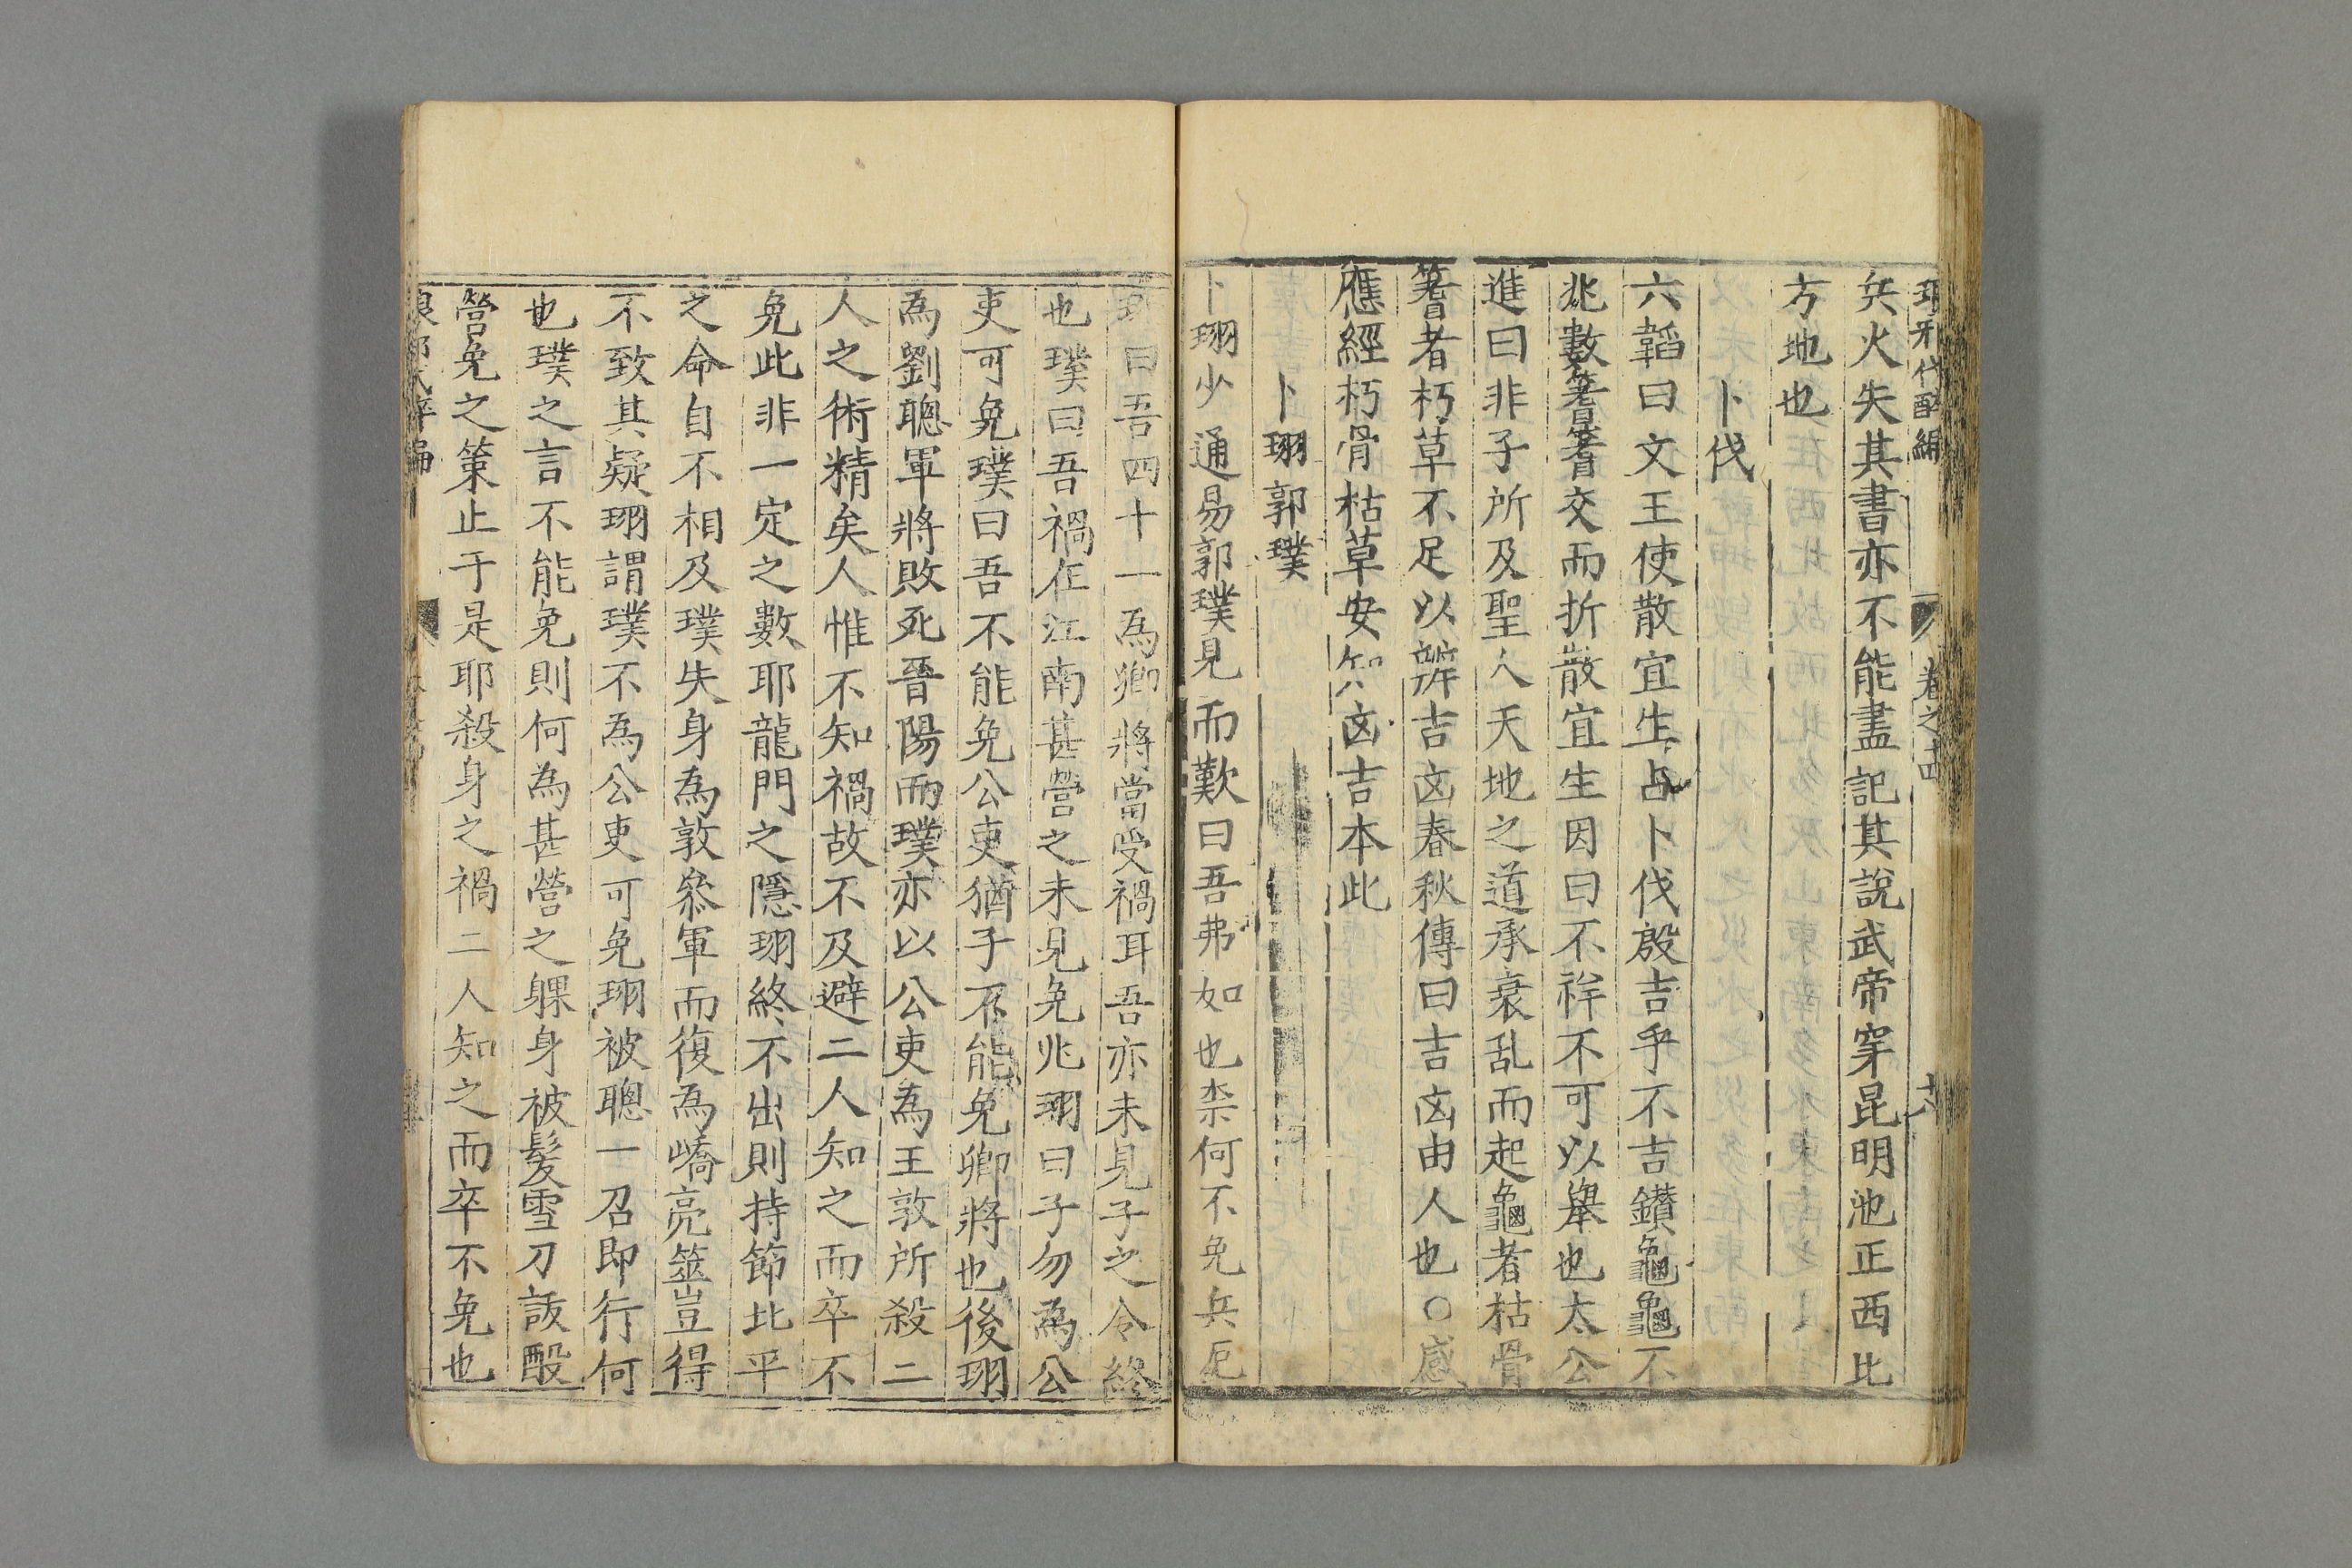 卷之十四
兵火失其書亦不能盡記其說武帝穿昆明池正西比
方地也
卜伐
六韜曰文王使散宜生占卜伐殷吉乎不吉鑚龜龜不
兆數蓍蓍交而折散宜生因曰不祥不可以舉也太公
進曰非子所及聖人天地之道承衰乱而起龜者枯骨
蓍者朽草不足以辨吉凶春秋傳曰吉凶由人也○感
應經朽骨枯草安知凶吉本此
卜珝郭璞
卜珝少通易郭璞見而歎曰吾弗如也柰何不免兵厄
珝曰吾四十一為卿將當受禍耳吾亦未見子之令終
也璞曰吾禍在江南甚營之未見免兆珝曰子勿為公
吏可免璞曰吾不能免公吏猶子不能免卿將也後珝
為劉聰軍將敗死晉陽而璞亦以公吏為王敦所殺二
人之術精矣人惟不知禍故不及避二人知之而卒不
免此非一定之數耶龍門之隱珝終不出則持節比平
之命自不相及璞失身為敦叅軍而復為嶠亮筮豈得
不致其疑珝謂璞不為公吏可免珝被聰一召即行何
也璞之言不能免則何為甚營之躶身被髮雪刀設酘
營免之策止于是耶殺身之禍二人知之而卒不免也